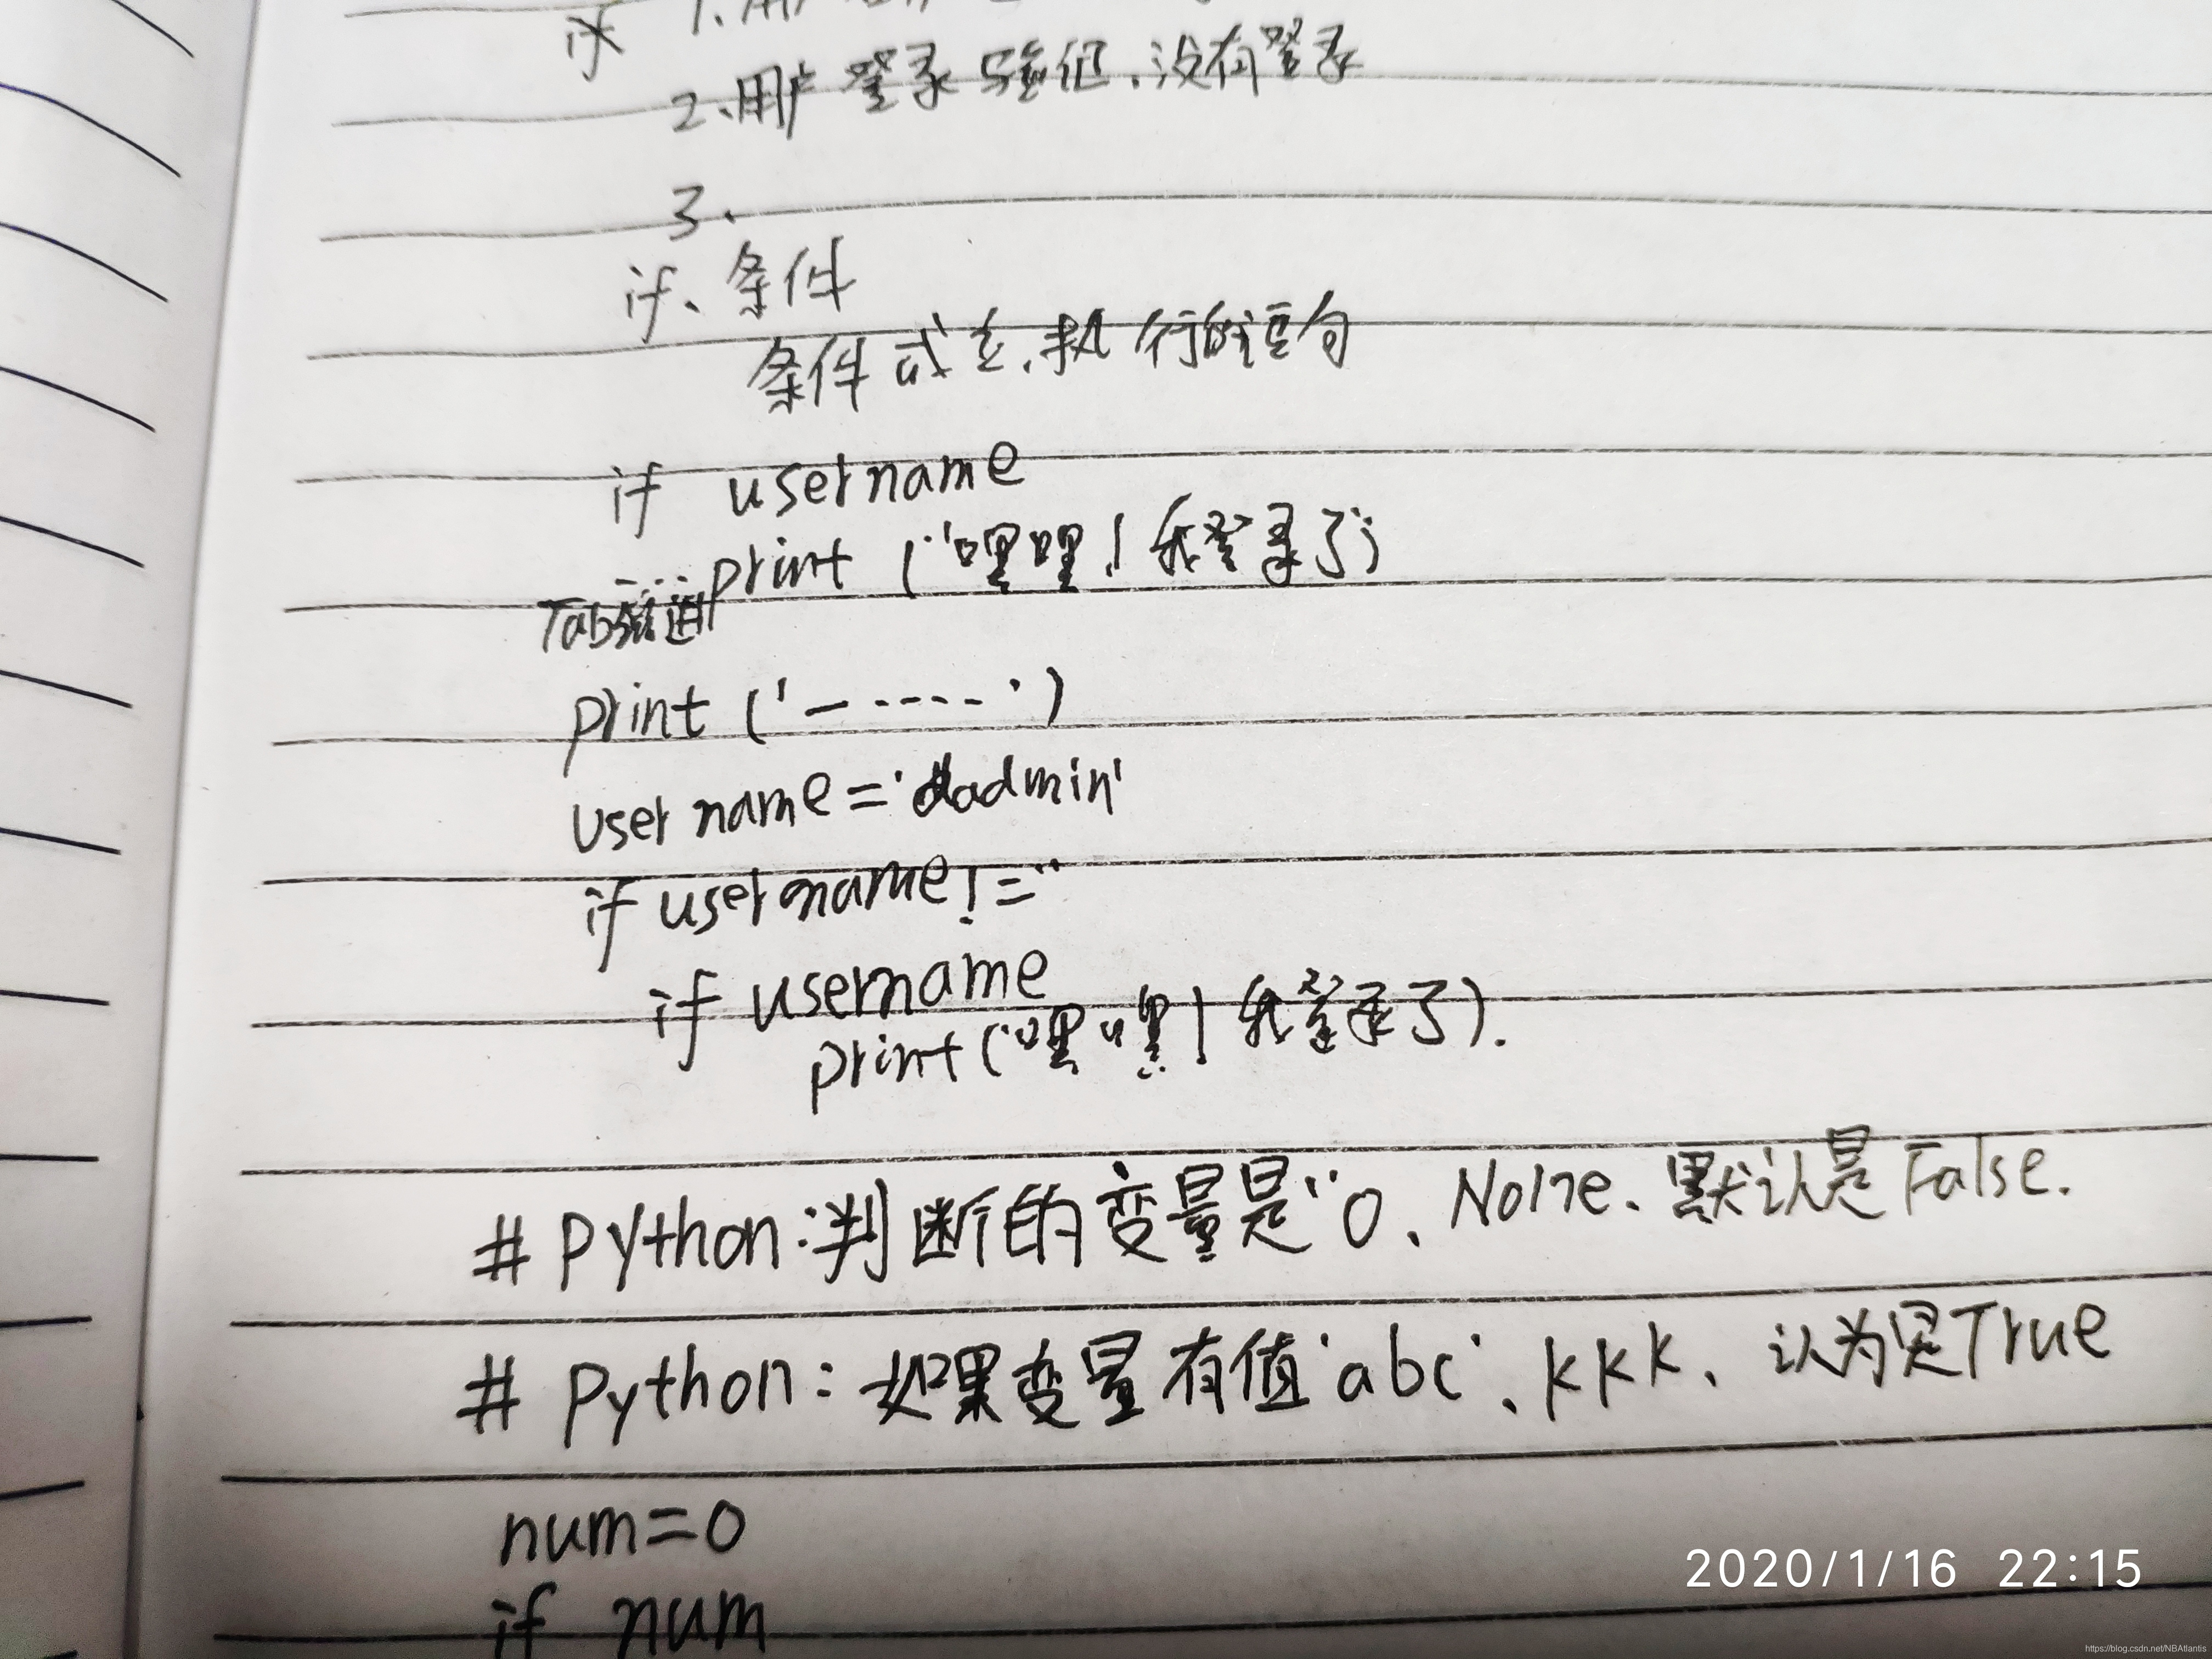 if 1.用户
2.用户登录验证,没有登录
3.
if、条件
条件成立,执行的语句
if username
print ('嘿嘿!我登录了')
Tab缩进
print ('------')
username='admin'
if username!=''
if username
print('嘿嘿!我登录了).
# Python:判断的变量是''0、None、默认是False.
# Python:如果变量有值'abc'、kkk、认为是True
num=0
if num
2020/1/16 22:15
https://blog.csdn.net/NBAtlantis